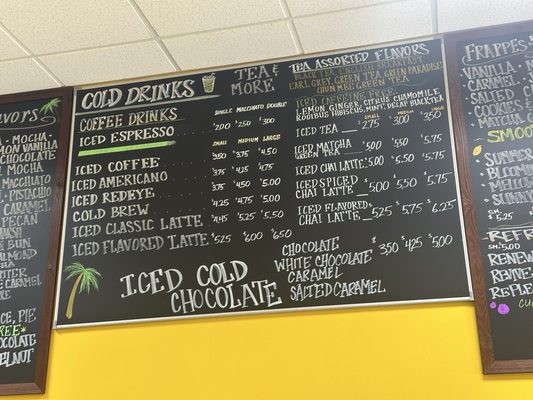 avors
MOCHA
VANILLA
CHOCOLATE
MOCHA
MACCHIATO
CARAMEL
PECAN
BUN
CARAMEL
ICE, PIE
FREE
CHOCOLATE
COLD DRINKS
COFFEE DRINKS
SINGLE MACCHIATO DOUBLE
ICED ESPRESSO $2.00 $2.50 $3.00
SMALL MEDIUM LARGE
ICED COFFEE $2.50 $3.75 $4.50
ICED AMERICANO $3.75 $4.25 $4.75
ICED REDEYE $3.75 $4.50 $5.00
COLD BREW $4.25 $4.75 $5.00
ICED CLASSIC LATTE $4.45 $5.25 $5.50
ICED FLAVORED LATTE $5.25 $6.00 $6.50
TEA & MORE
TEA ASSORTED FLAVORS
BLACK TEA, ENGLISH BREAKFAST
EARL GREY, GREEN TEA, GREEN PARADISE
CHUN MEE GREEN TEA
ICED CAFFEINE FREE
LEMON GINGER, CITRUS CHAMOMILE
ROOIBUS HIBISCUS, MINT, DECAF BLACK TEA
SMALL MEDIUM
ICED TEA $2.75 $3.00 $3.50
ICED MATCHA GREEN TEA $5.00 $5.50 $5.75
ICED CHAI LATTE $5.00 $5.25 $5.75
ICED SPICED CHAI LATTE $5.00 $5.50 $5.75
ICED FLAVORED CHAI LATTE $5.25 $5.75 $6.25
ICED COLD CHOCOLATE
CHOCOLATE
WHITE CHOCOLATE
CARAMEL
SALTED CARAMEL
$3.50 $4.25 $5.00
FRAPPES
VANILLA
CARAMEL
SALTED
COOKIES
MATCHA
SMOO
SUMMER
SUNNY
$5.25
REFRE
SM $5.00
RENEW